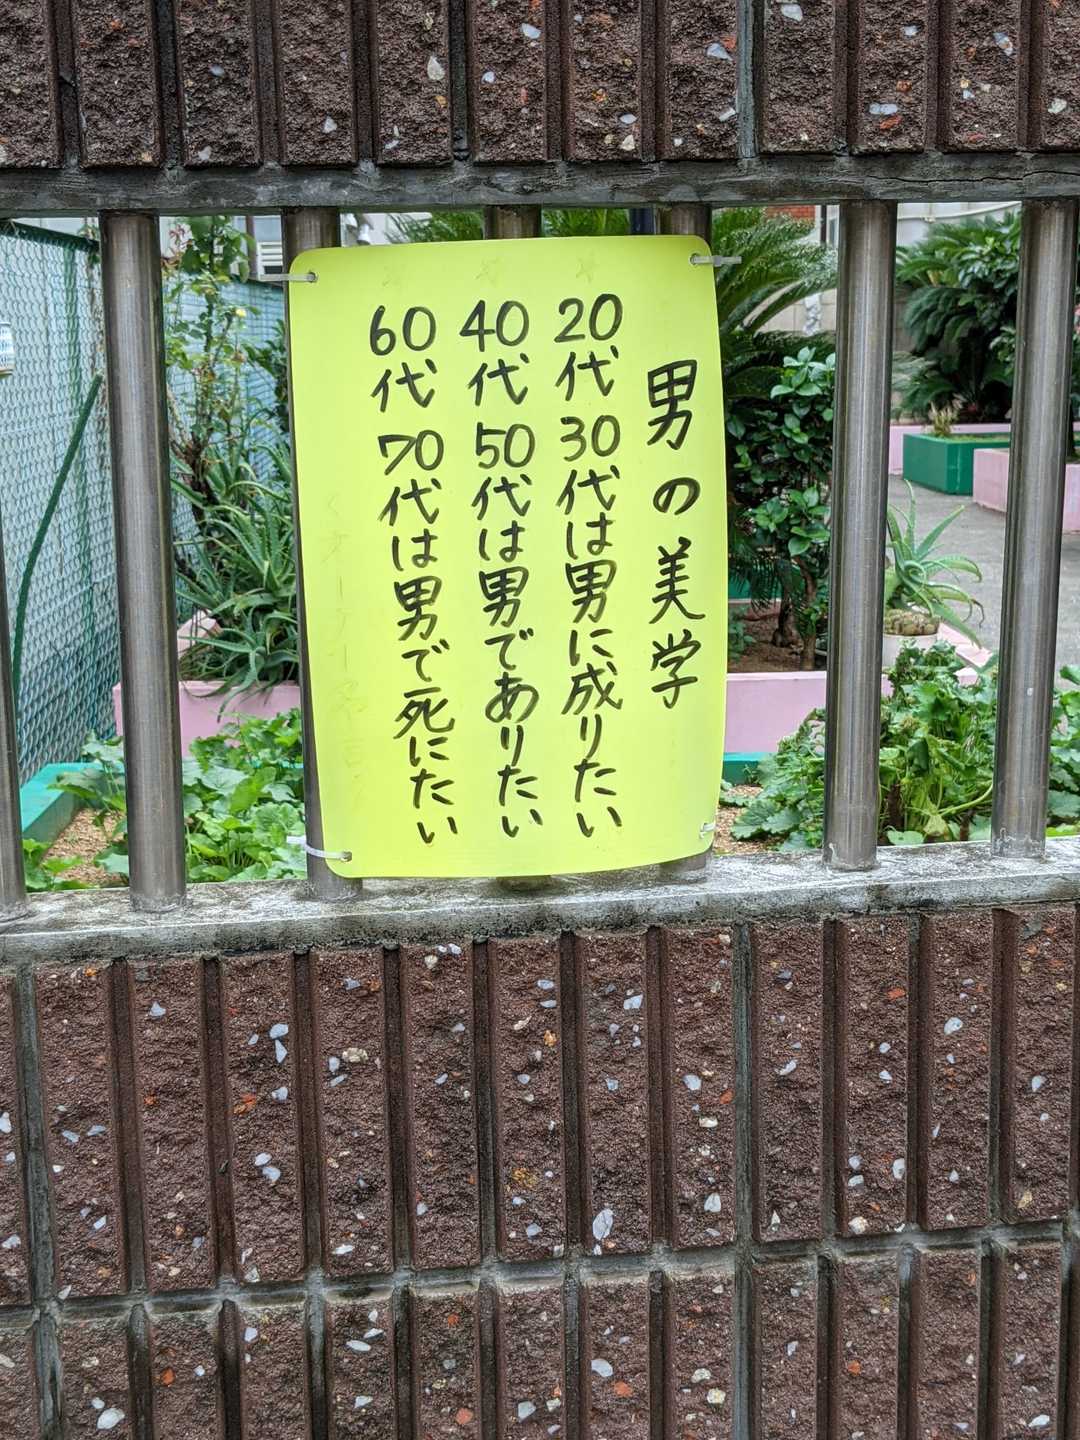 男の美学
20代30代は男に成りたい
40代50代は男でありたい
60代70代は男で死にたい